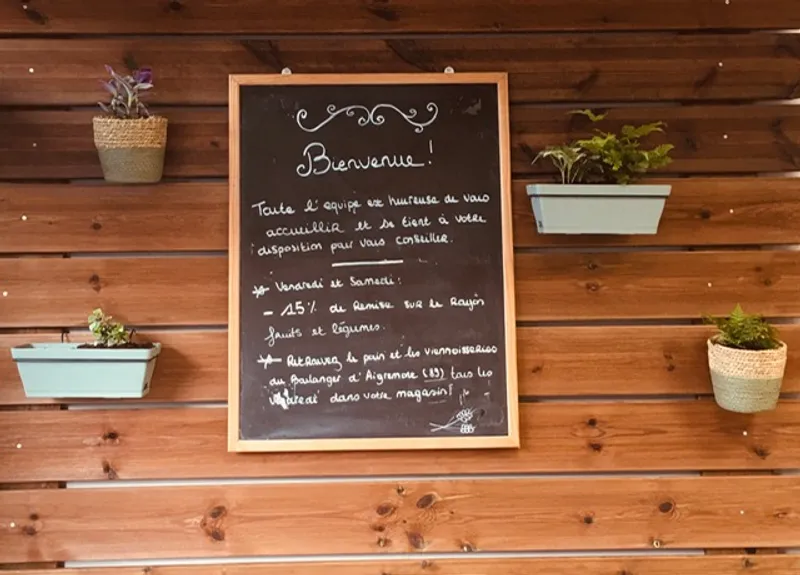 Bienvenue !
Toute l'equipe est heureuse de vous
accueillir et se tient à votre
disposition pour vous conseiller.
Vendredi et Samedi :
- 15% de Remise sur le Rayon
fruits et légumes.
Retrouvez le pain et les viennoiseries
du Boulanger d'Aigremont (89) tous les
vendredi dans votre magasin !